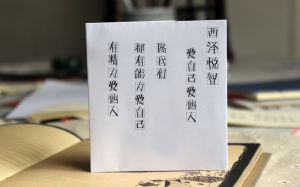 西泽悦智
爱自己爱他人
愿我们
都有能力爱自己
有精力爱他人